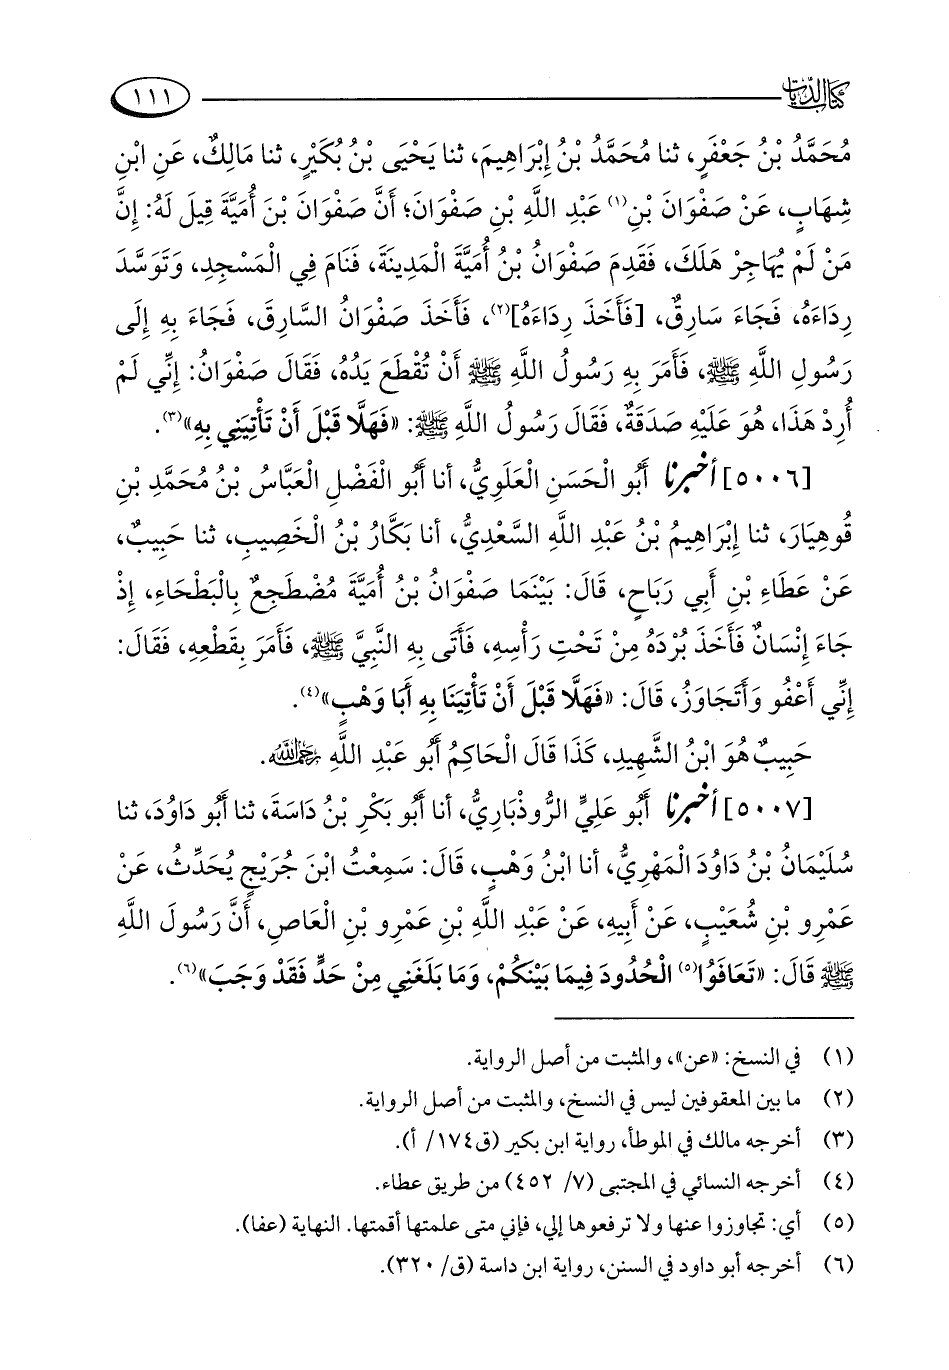 كتاب الديات ١١١
مُحَمَّدُ بْنُ جَعْفَرٍ، ثنا مُحَمَّدُ بْنُ إِبْرَاهِيمَ، ثنا يَحْيَى بْنُ بُكَيْرٍ، ثنا مَالِكٌ، عَنِ ابْنِ
شِهَابٍ، عَنْ صَفْوَانَ بْنِ(١) عَبْدِ اللَّهِ بْنِ صَفْوَانَ؛ أَنَّ صَفْوَانَ بْنَ أُمَيَّةَ قِيلَ لَهُ: إِنَّ
مَنْ لَمْ يُهَاجِرْ هَلَكَ، فَقَدِمَ صَفْوَانُ بْنُ أُمَيَّةَ الْمَدِينَةَ، فَنَامَ فِي الْمَسْجِدِ، وَتَوَسَّدَ
رِدَاءَهُ، فَجَاءَ سَارِقٌ، [فَأَخَذَ رِدَاءَهُ](٢)، فَأَخَذَ صَفْوَانُ السَّارِقَ، فَجَاءَ بِهِ إِلَى
رَسُولِ اللَّهِ ﷺ، فَأَمَرَ بِهِ رَسُولُ اللَّهِ ﷺ أَنْ تُقْطَعَ يَدُهُ، فَقَالَ صَفْوَانُ: إِنِّي لَمْ
أُرِدْ هَذَا، هُوَ عَلَيْهِ صَدَقَةٌ، فَقَالَ رَسُولُ اللَّهِ ﷺ: «فَهَلَّا قَبْلَ أَنْ تَأْتِيَنِي بِهِ»(٣).
[٥٠٠٦] أخبرنا أَبُو الْحَسَنِ الْعَلَوِيُّ، أنا أَبُو الْفَضْلِ الْعَبَّاسُ بْنُ مُحَمَّدِ بْنِ
قُوهِيَارَ، ثنا إِبْرَاهِيمُ بْنُ عَبْدِ اللَّهِ السَّعْدِيُّ، أنا بَكَّارُ بْنُ الْخَصِيبِ، ثنا حَبِيبٌ،
عَنْ عَطَاءِ بْنِ أَبِي رَبَاحٍ، قَالَ: بَيْنَمَا صَفْوَانُ بْنُ أُمَيَّةَ مُضْطَجِعٌ بِالْبَطْحَاءِ، إِذْ
جَاءَ إِنْسَانٌ فَأَخَذَ بُرْدَهُ مِنْ تَحْتِ رَأْسِهِ، فَأَتَى بِهِ النَّبِيَّ ﷺ، فَأَمَرَ بِقَطْعِهِ، فَقَالَ:
إِنِّي أَعْفُو وَأَتَجَاوَزُ، قَالَ: «فَهَلَّا قَبْلَ أَنْ تَأْتِيَنَا بِهِ أَبَا وَهْبٍ»(٤).
حَبِيبٌ هُوَ ابْنُ الشَّهِيدِ، كَذَا قَالَ الْحَاكِمُ أَبُو عَبْدِ اللَّهِ رحمه الله.
[٥٠٠٧] أخبرنا أَبُو عَلِيٍّ الرُّوذْبَارِيُّ، أنا أَبُو بَكْرِ بْنُ دَاسَةَ، ثنا أَبُو دَاوُدَ، ثنا
سُلَيْمَانُ بْنُ دَاوُدَ الْمَهْرِيُّ، أنا ابْنُ وَهْبٍ، قَالَ: سَمِعْتُ ابْنَ جُرَيْجٍ يُحَدِّثُ، عَنْ
عَمْرِو بْنِ شُعَيْبٍ، عَنْ أَبِيهِ، عَنْ عَبْدِ اللَّهِ بْنِ عَمْرِو بْنِ الْعَاصِ، أَنَّ رَسُولَ اللَّهِ
ﷺ قَالَ: «تَعَافَوُا(٥) الْحُدُودَ فِيمَا بَيْنَكُمْ، وَمَا بَلَغَنِي مِنْ حَدٍّ فَقَدْ وَجَبَ»(٦).
(١) في النسخ: «عن»، والمثبت من أصل الرواية.
(٢) ما بين المعقوفين ليس في النسخ، والمثبت من أصل الرواية.
(٣) أخرجه مالك في الموطأ، رواية ابن بكير (ق١٧٤/ أ).
(٤) أخرجه النسائي في المجتبى (٧/ ٤٥٢) من طريق عطاء.
(٥) أي: تجاوزوا عنها ولا ترفعوها إلي، فإني متى علمتها أقمتها. النهاية (عفا).
(٦) أخرجه أبو داود في السنن، رواية ابن داسة (ق/ ٣٢٠).